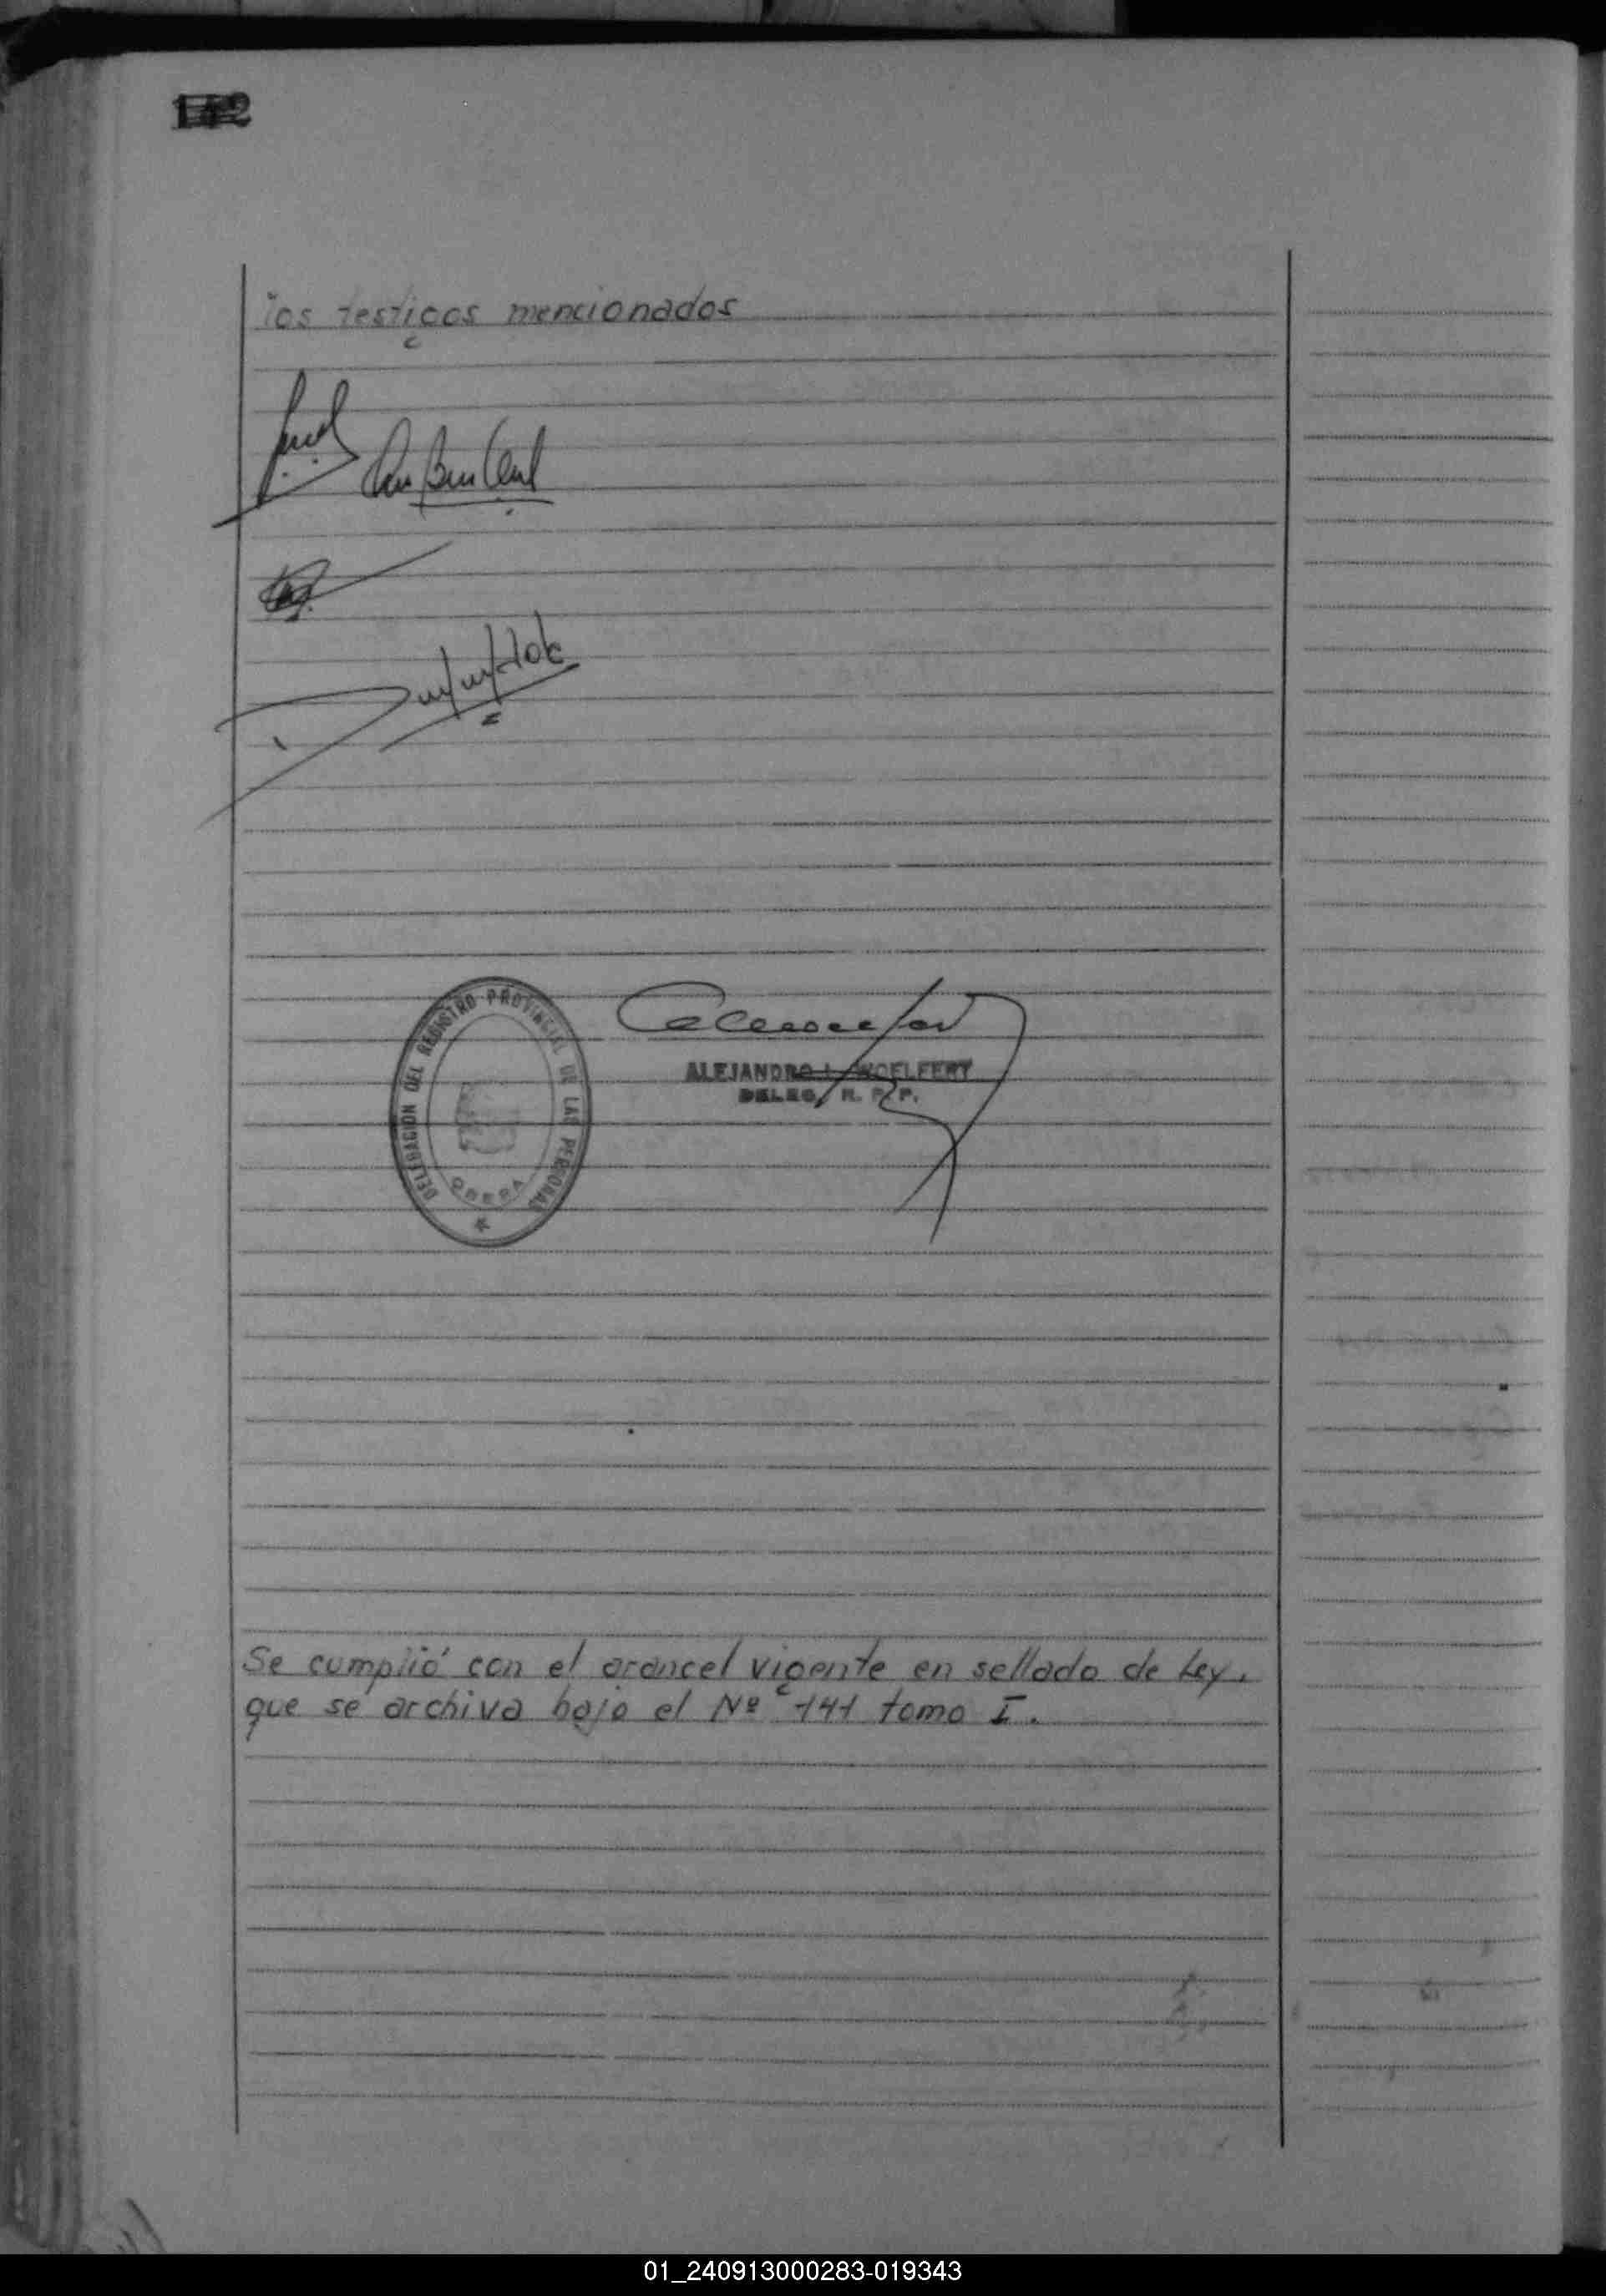 los testigos mencionados
DELEGACION DEL REGISTRO PROVINCIAL DE LAS PERSONAS
OBERA
ALEJANDRO L. WOELFERT
DELEG. R. P. P.
Se cumplió con el arancel vigente en sellado de Ley.
que se archiva bajo el Nº 141 tomo I.
01_240913000283-019343